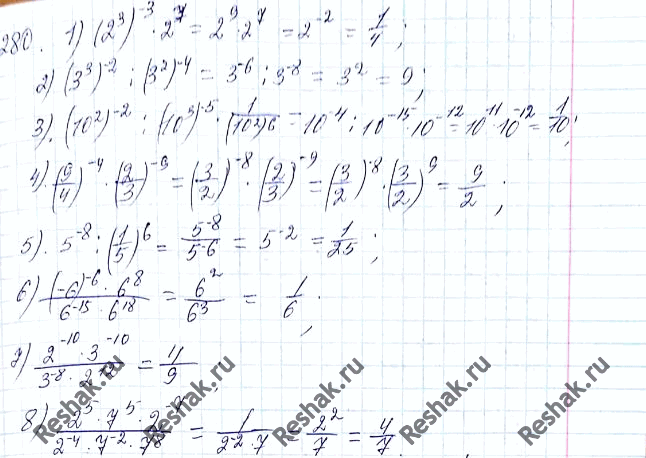 280. 1) (2³)⁻³ · 2⁷ = 2⁹ · 2⁷ = 2⁻² = 1/4 ;
2) (3³)⁻² : (3²)⁻⁴ = 3⁻⁶ : 3⁻⁸ = 3² = 9 ;
3). (10²)⁻² : (10³)⁻⁵ · 1/(10²)6 = 10⁻⁴ : 10⁻¹⁵ · 10⁻¹² = 10¹¹ · 10⁻¹² = 1/10 ;
4). (9/4)⁻⁴ · (2/3)⁻⁹ = (3/2)⁻⁸ · (2/3)⁻⁹ = (3/2)⁻⁸ · (3/2)⁹ = 9/2 ;
5). 5⁻⁸ : (1/5)⁶ = 5⁻⁸/5⁻⁶ = 5⁻² = 1/25 ;
6) (-6)⁻⁶ · 6⁸ / 6⁻¹⁵ · 6¹⁸ = 6²/6³ = 1/6 ;
7) 2⁻¹⁰ · 3⁻¹⁰ / 3⁻⁸ · 2 = 4/9
8) 2⁵ · 7⁵ · 2 / 2⁻⁴ · 7⁻² · 7⁸ = 1/2⁻² · 7 = 2²/7 = 4/7
Reshak.ru Reshak.ru Reshak.ru Reshak.ru